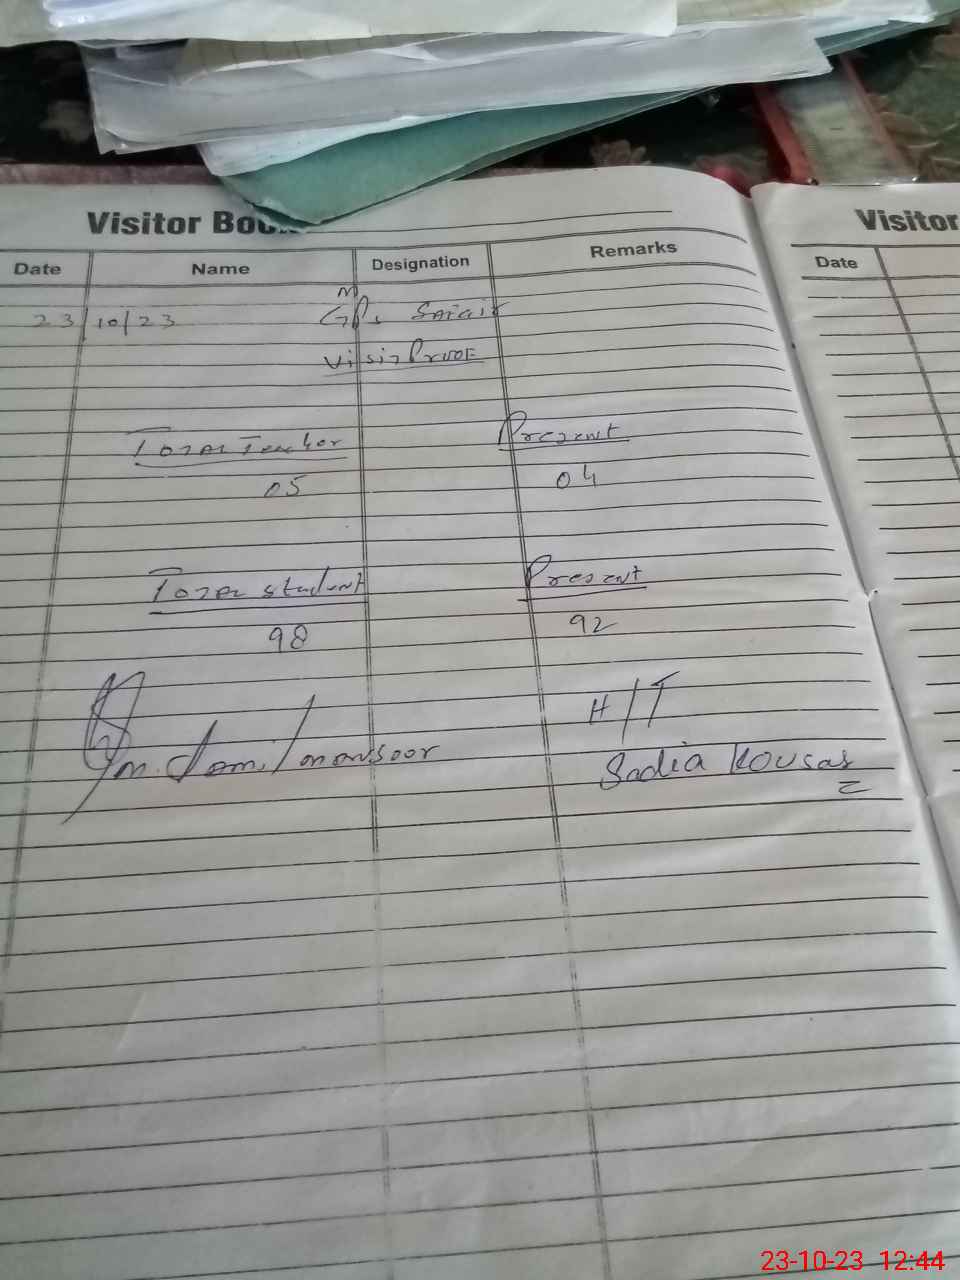 Visitor Boo
Visitor
Date Name Designation Remarks
Date
M
23/10/23 GPS
Visit Proof
Total Teacher Present
05 04
Total student Present
98 92
H/T
M. Jamil mansoor Sadia Kousar
23-10-23 12:44